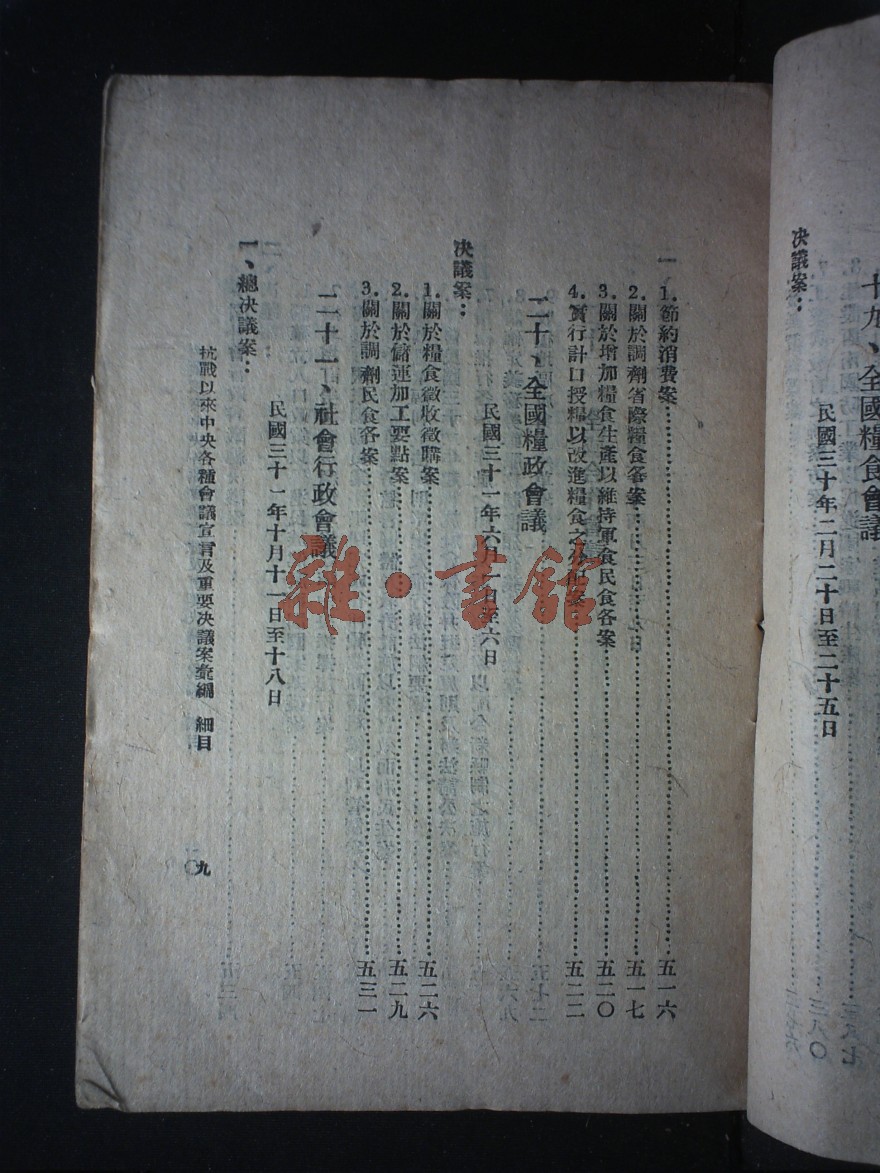 十九、全國糧食會議
民國三十年二月二十日至二十五日
決議案：
1.節約消費案……五一六
2.關於調劑省際糧食各案……五一七
3.關於增加糧食生產以維持軍食民食各案……五二〇
4.實行計口授糧以改進糧食之分配案……五二二
二十、全國糧政會議
民國三十一年六月一日至六日
決議案：
1.關於糧食徵收徵購案……五二六
2.關於儲運加工要點案……五二九
3.關於調劑民食各案……五三一
二十一、社會行政會議
民國三十一年十月十一日至十八日
一、總決議案：
抗戰以來中央各種會議宣言及重要決議案彙編　細目
九
雜·書館